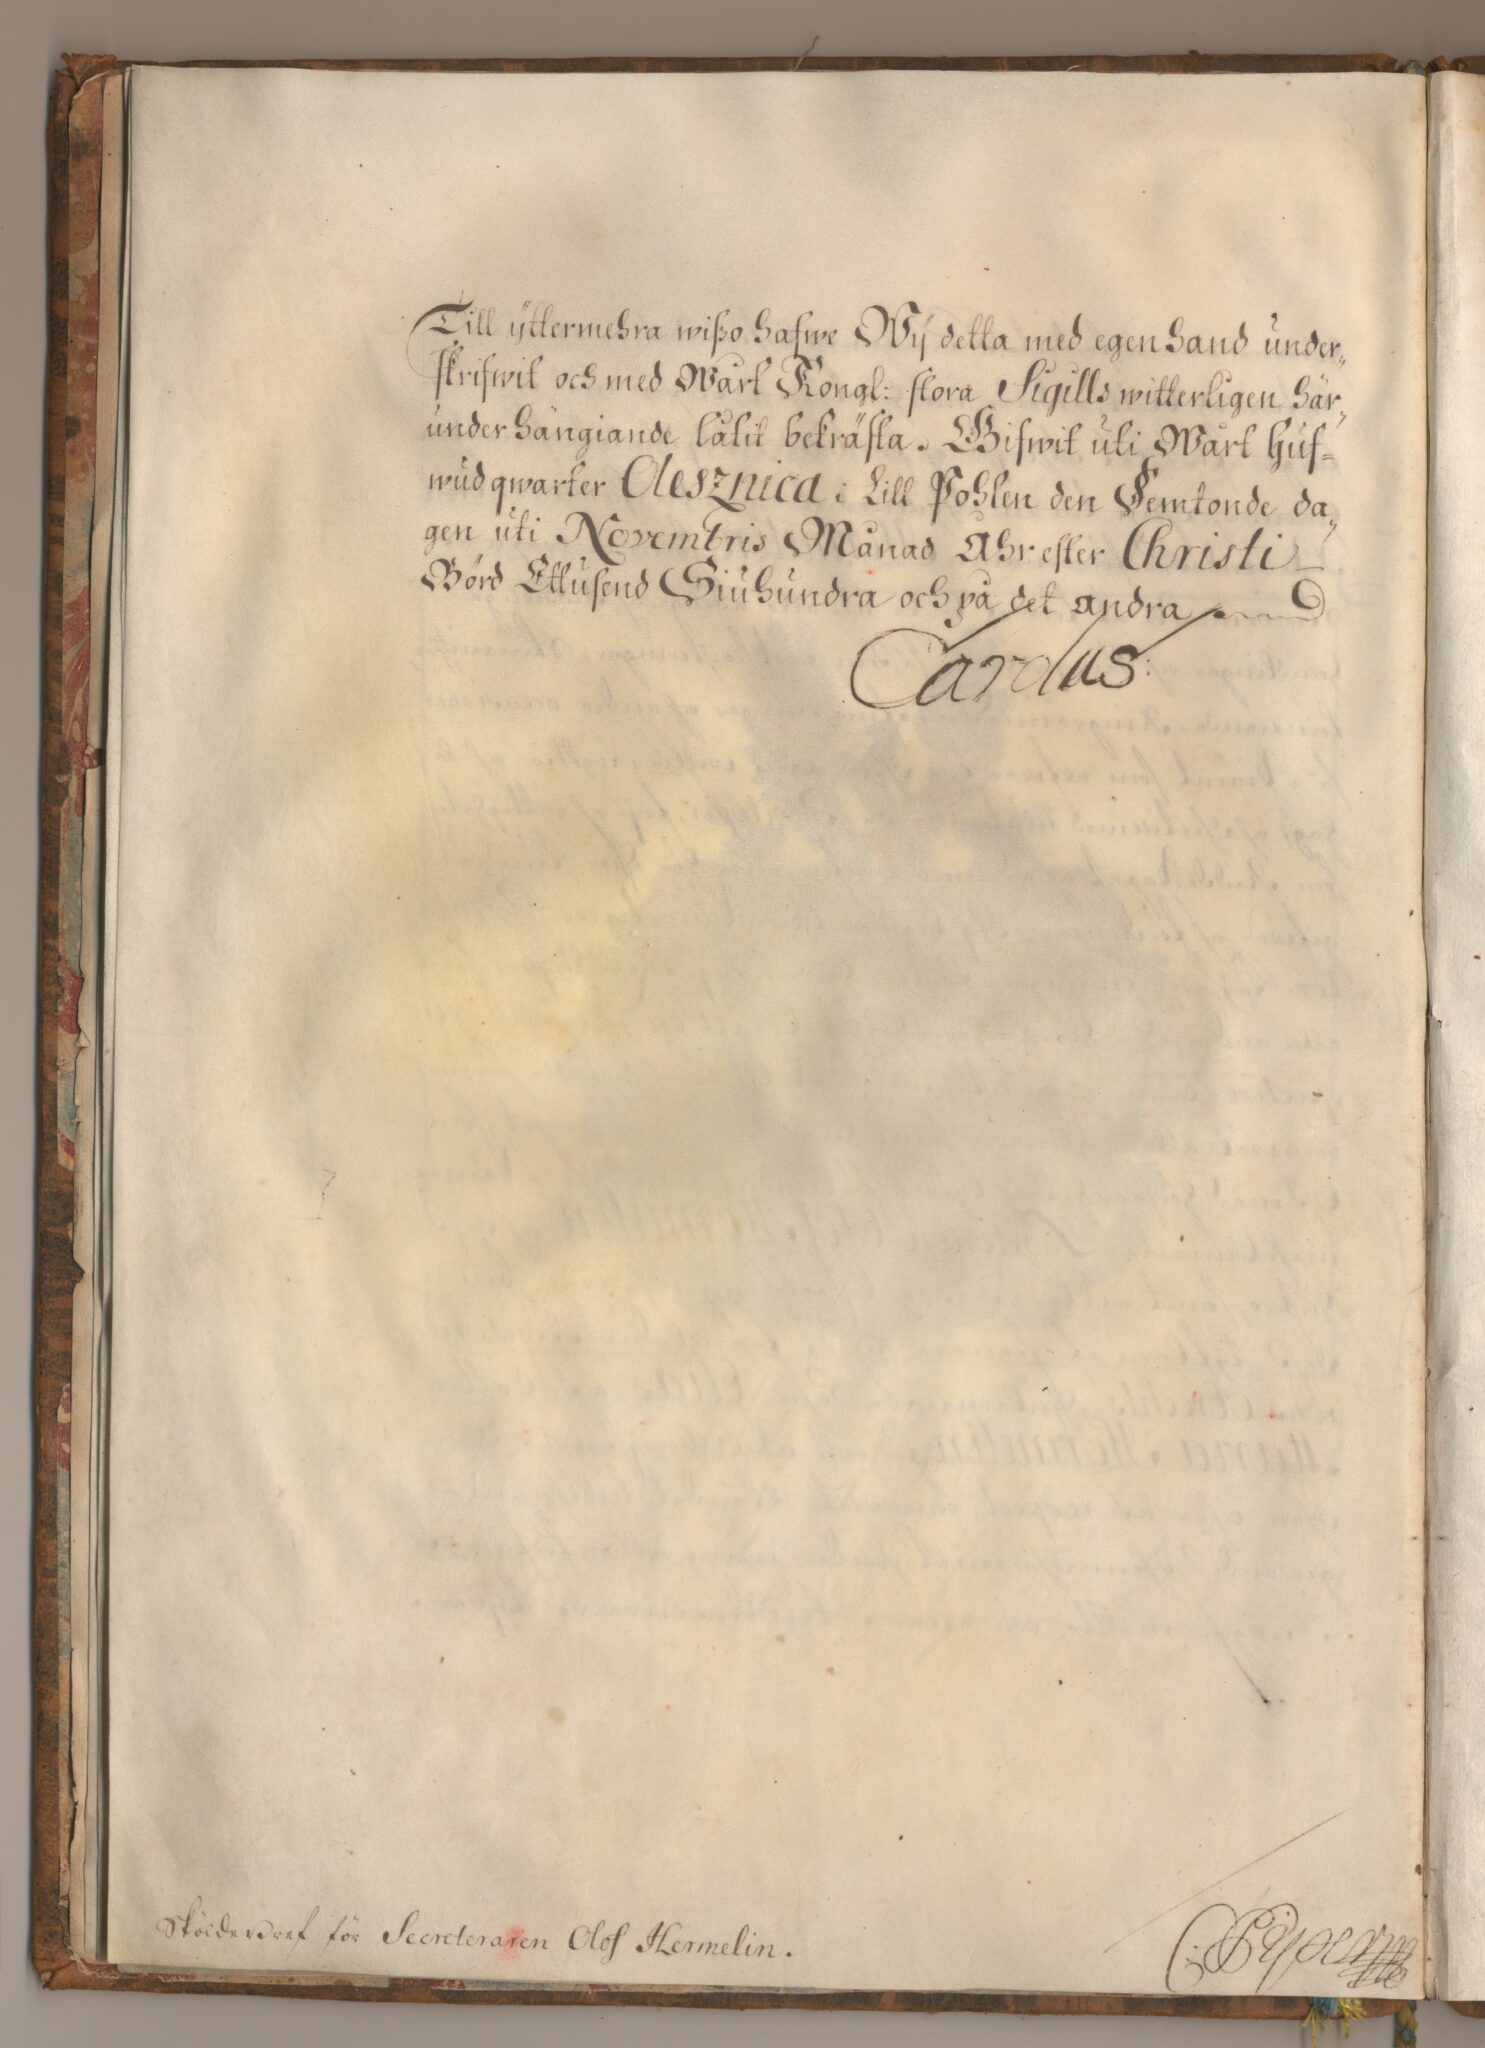 Till ÿttermehra wißo hafwe Wÿ detta med egen hand under„
skrifwit och med Wårt Kongl: stora Sigills witterligen här„
under hängiande låtit bekräfta. Gifwit uti Wårt Huf=
wudqwarter Olesznica i Lill Pohlen den Femtonde da„
gen uti Novembris Månad Åhr efter Christi
Börd Ettusend Siuhundra och på det andra
Carolus
Skölde bref för Secreteraren Olof Hermelin.
C: Piper